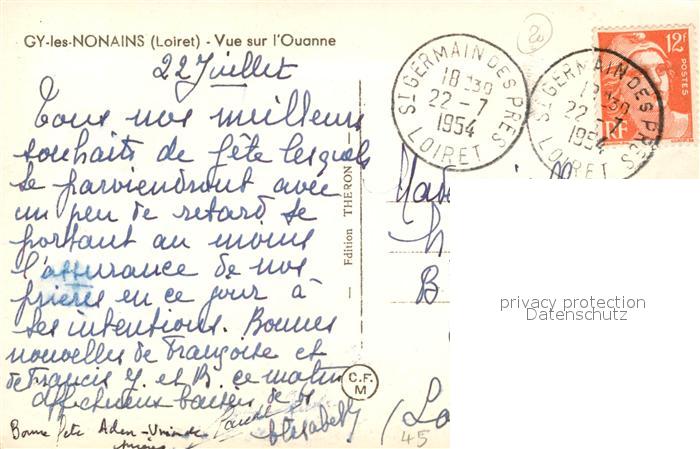 GY-les-NONAINS (Loiret) - Vue sur l'Ouanne
22 Juillet
Tous nos meilleurs
souhaits de fête lesquels
te parviendront avec
un peu de retard, te
portant au moins
l'assurance de nos
prières en ce jour à
tes intentions. Bonnes
nouvelles de Françoise et
de Francis Y. et B. ce matin
affectueux baisers de
Elisabeth
Bonne fête
Edition THERON
C.F.
M
ST GERMAIN DES PRÉS
18 H30
22 - 7
1954
LOIRET
ST GERMAIN DES PRÉS
18 H30
22 - 7
1954
LOIRET
12F
POSTES
RF
B
(Lo
45
privacy protection
Datenschutz